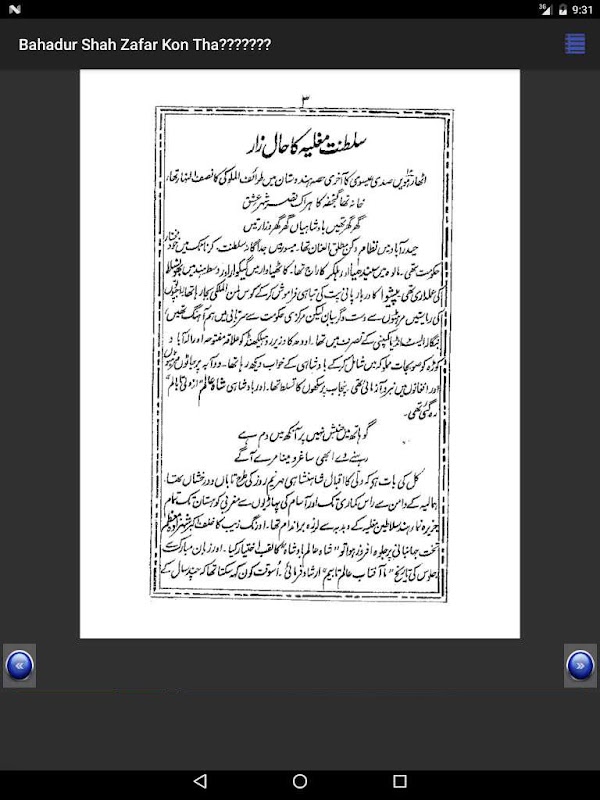 9:31
Bahadur Shah Zafar Kon Tha???????
۳
سلطنت مغلیہ کا حال زار
اٹھارہویں صدی عیسوی کا آخری حصہ ہندوستان میں طوائف الملوکی کا نصف النہار تھا،
خانہ تھا گنجفہ کا ہر اک شہر عشق
گھر گھر تھیں بادشاہیاں گھر گھر وزارتیں
حیدرآباد میں نظام دکن مطلق العنان تھا۔ میسور میں جداگانہ سلطنت۔ کرناٹک میں خود مختار
حکومت تھی۔ مالوہ میں سیندھیا اور ہلکر کا راج تھا۔ کاٹھیاوار میں گیکوار اور وسط ہند میں
کی عملداری تھی۔ پیشوا کا دربار پانی پت کی تباہی فراموش کر کے کوس لمن الملکی بجا رہا تھا۔
کی ریاستیں مرہٹوں سے دست و گریبان لیکن مرکزی حکومت سے سرتابی میں ہم آہنگ تھیں۔
بنگالہ ایسٹ انڈیا کمپنی کے تصرف میں تھا۔ اودھ کا وزیر روہیلکھنڈ کو علاقہ مفتوحہ اور الہ آباد و
کوڑہ کو صوبجات مملوکہ میں شامل کر کے بادشاہی کے خواب دیکھ رہا تھا۔ دوآبہ پر جاٹوں
اور افغانوں میں نبرد آزمائی تھی۔ پنجاب پر سکھوں کا تسلط تھا۔ اور بادشاہی شاہ عالم از دلی تا پالم
رہ گئی تھی۔
گو ہاتھ میں جنبش نہیں پر آنکھ میں دم ہے
رہنے دے ابھی ساغر و مینا مرے آگے
کل کی بات ہے کہ دلی کا اقبال شاہنشاہی مہر نیم روز کی طرح تاباں و درخشاں تھا۔
ہمالیہ کے دامن سے راس کماری تک اور آسام کی پہاڑیوں سے مغربی کوہستان تک تمام
جزیرہ نما ہند سلاطین مغلیہ کے دبدبہ سے لرزہ براندام تھا۔ اورنگ زیب کا خلف اکبر شہزادہ معظم
تخت جہانبانی پر جلوہ افروز ہوا تو "شاہ عالم بادشاہ" کا لقب اختیار کیا۔ اور زبان مبارک سے
جلوس کی تاریخ "ما آفتاب عالم تابیم" ارشاد فرمائی۔ اُسوقت کون کہہ سکتا تھا کہ چند سال کے